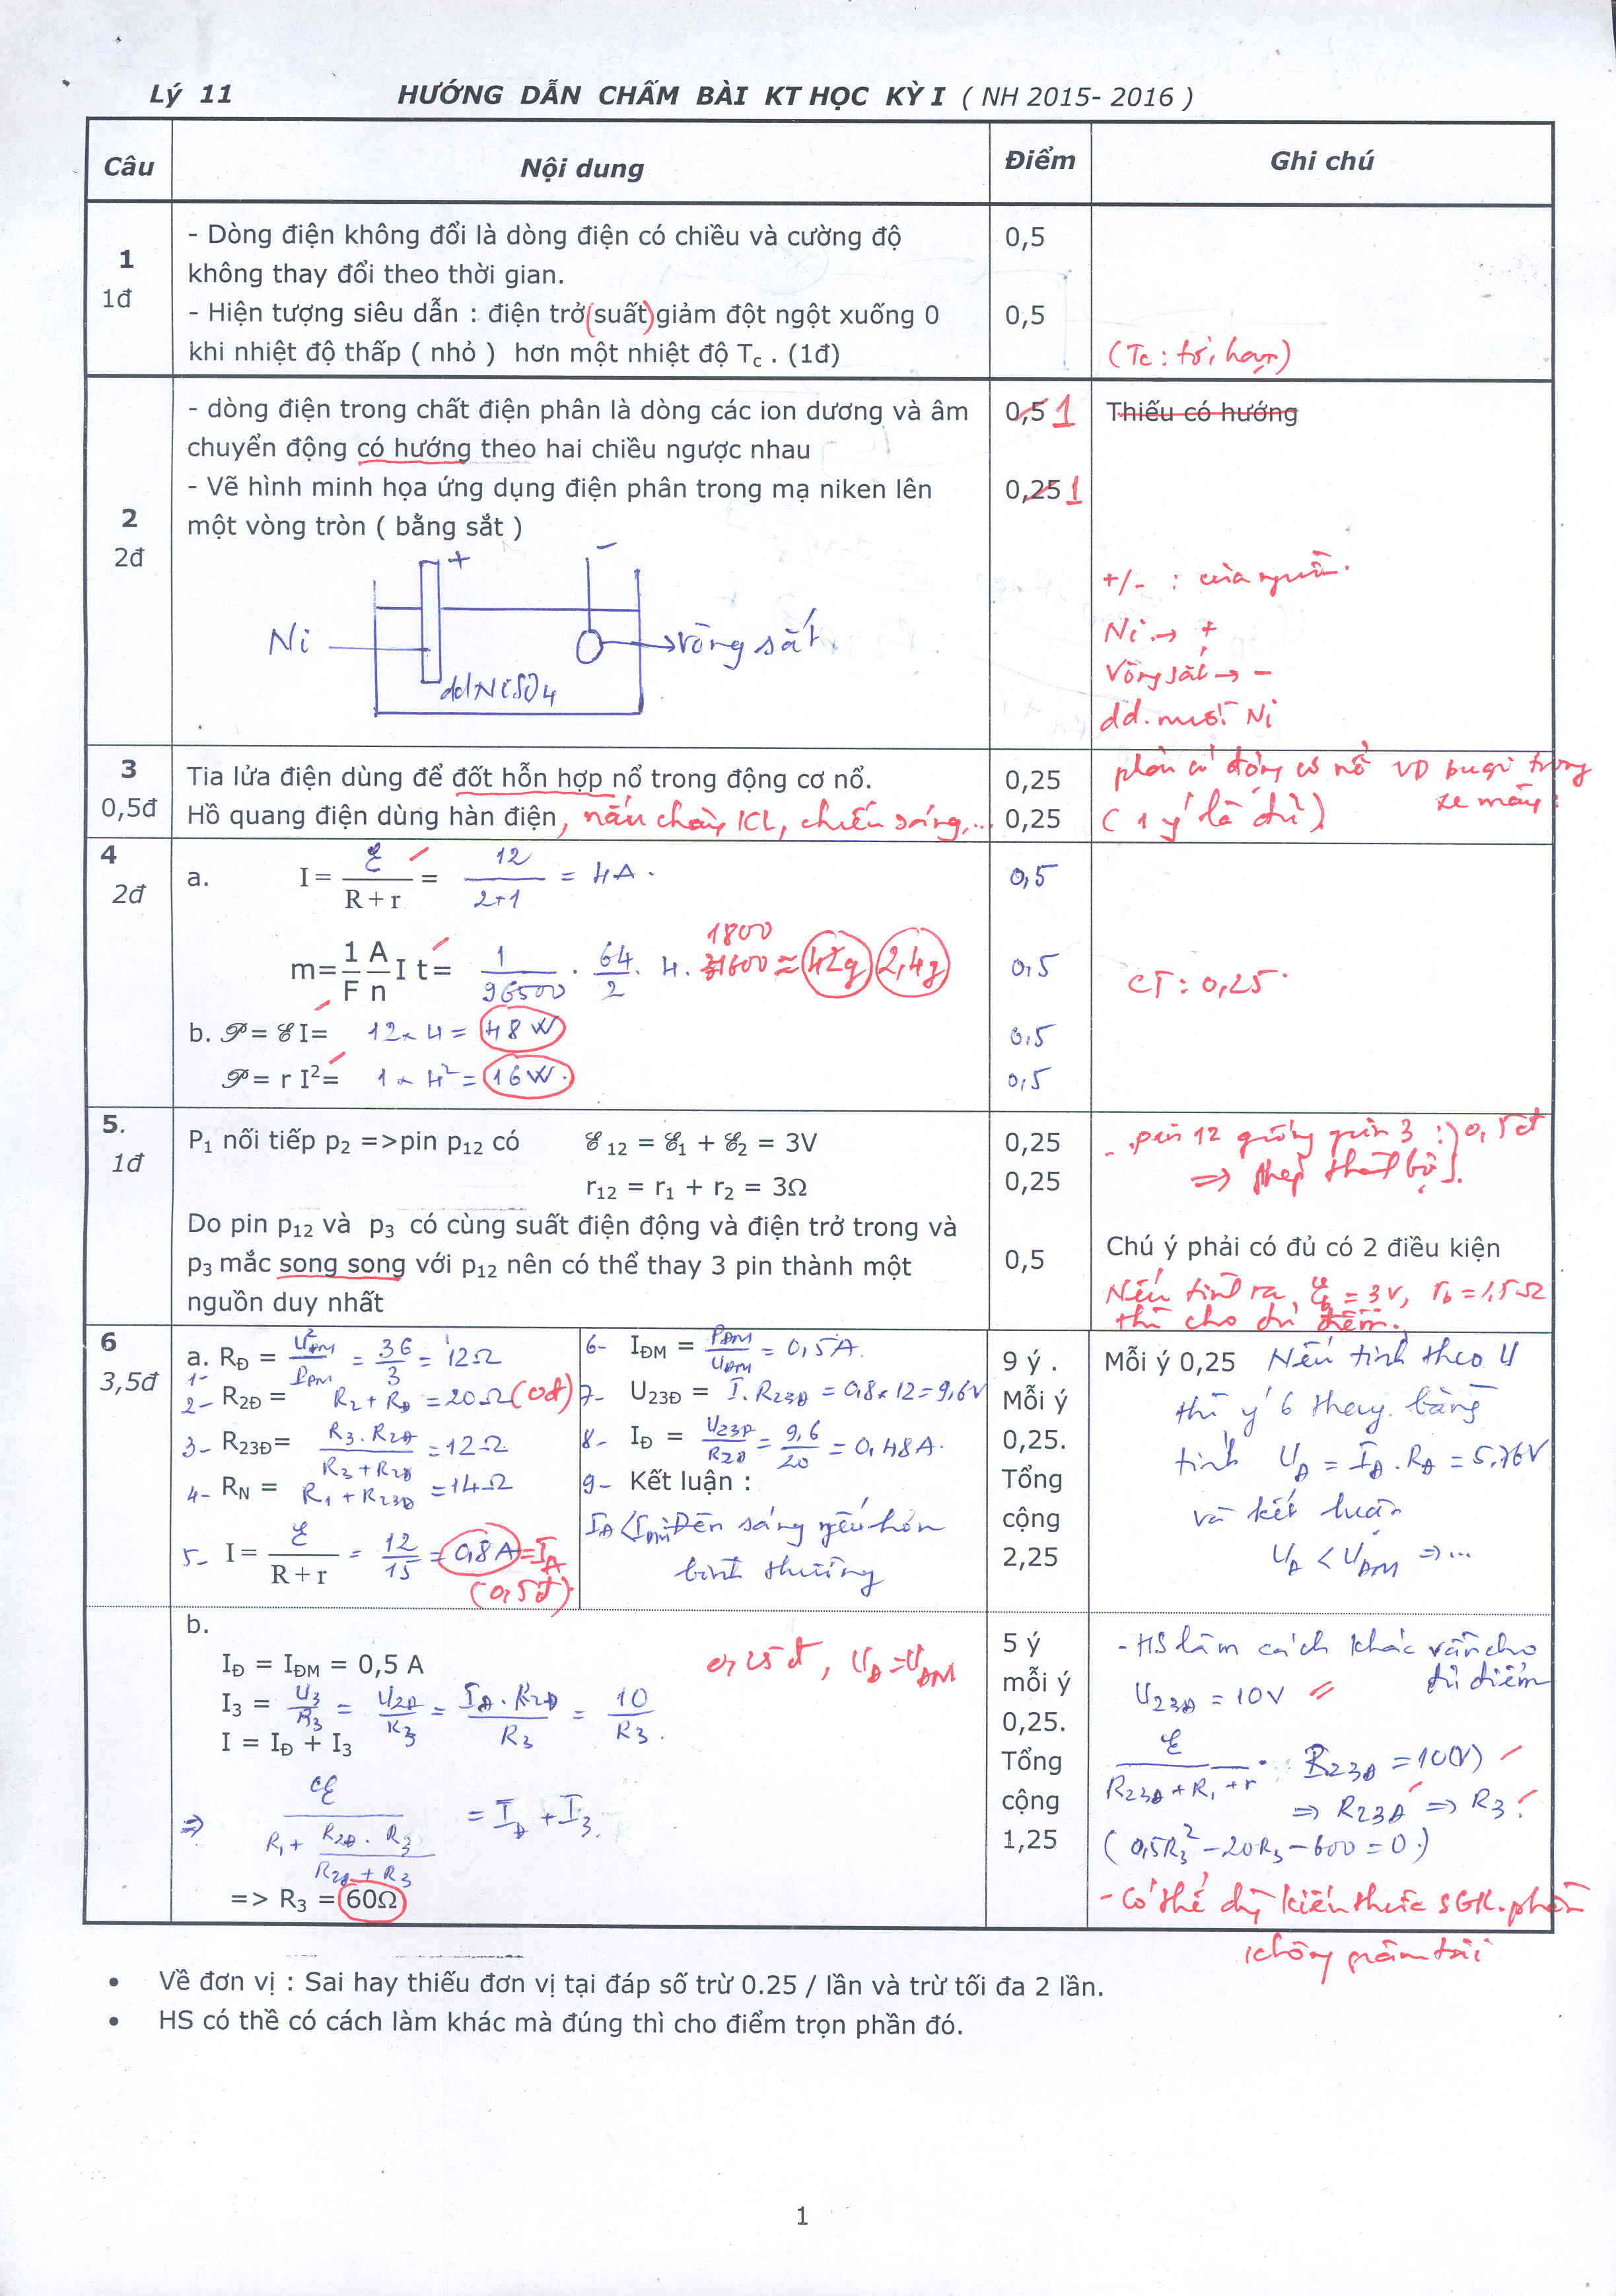 Lý 11 HƯỚNG DẪN CHẤM BÀI KT HỌC KỲ I ( NH 2015- 2016 )
Câu Nội dung Điểm Ghi chú
1
1đ
- Dòng điện không đổi là dòng điện có chiều và cường độ 0,5
không thay đổi theo thời gian.
- Hiện tượng siêu dẫn : điện trở (suất) giảm đột ngột xuống 0 0,5
khi nhiệt độ thấp ( nhỏ ) hơn một nhiệt độ Tc . (1đ) (Tc : tới hạn)
2
2đ
- dòng điện trong chất điện phân là dòng các ion dương và âm 0,5 1 Thiếu có hướng
chuyển động có hướng theo hai chiều ngược nhau
- Vẽ hình minh họa ứng dụng điện phân trong mạ niken lên 0,25 1
một vòng tròn ( bằng sắt )
+ −
Ni vòng sắt
ddNiSO4
+/- : của nguồn.
Ni → +
Vòng sắt → −
dd. muối Ni
3
0,5đ
Tia lửa điện dùng để đốt hỗn hợp nổ trong động cơ nổ. 0,25 phải có động cơ nổ VD bugi trong
xe máy
Hồ quang điện dùng hàn điện, nấu chảy KL, chiếu sáng,... 0,25 (1 ý là đủ)
4
2đ
a. I = ℰ/(R + r) = 12/(2+1) = 4A. 0,5
m = 1/F A/n I t = 1/96500 . 64/2 . 4 . 1800 ≈ 2,4g 0,5 CT : 0,25
b. 𝒫 = ℰ I = 12 × 4 = 48 W 0,5
𝒫 = r I² = 1 × 4² = 16W. 0,5
5.
1đ
P1 nối tiếp p2 =>pin p12 có ℰ12 = ℰ1 + ℰ2 = 3V 0,25
r12 = r1 + r2 = 3Ω 0,25
- pin 12 giống pin 3 :) 0,5đ
Do pin p12 và p3 có cùng suất điện động và điện trở trong và
p3 mắc song song với p12 nên có thể thay 3 pin thành một 0,5 Chú ý phải có đủ có 2 điều kiện
nguồn duy nhất
Nếu tính ra ℰb = 3V, rb = 1,5Ω
thì cho đủ điểm.
6
3,5đ
a. RĐ = U²ĐM/PĐM = 36/3 = 12Ω
1-
2- R2Đ = R2 + RĐ = 20Ω (0đ)
3- R23Đ = R3 . R2Đ/(R3 + R2Đ) = 12Ω
4- RN = R1 + R23Đ = 14Ω
5- I = ℰ/(R + r) = 12/15 = 0,8A = IA
(0,5đ)
6- IĐM = PĐM/UĐM = 0,5A.
7- U23Đ = I . R23Đ = 0,8 × 12 = 9,6V
8- IĐ = U23Đ/R2Đ = 9,6/20 = 0,48A.
9- Kết luận :
IĐ < IĐM Đèn sáng yếu hơn
bình thường
9 ý .
Mỗi ý
0,25.
Tổng
cộng
2,25
Mỗi ý 0,25 Nếu tính theo U
thì ý 6 thay bằng
tính UĐ = IĐ . RĐ = 5,76V
và kết luận
UĐ < UĐM ⇒ ...
b.
IĐ = IĐM = 0,5 A 0,25đ, UĐ = UĐM
I3 = U3/R3 = U2Đ/R3 = IĐ . R2Đ/R3 = 10/R3 .
I = IĐ + I3
⇒ ℰ/(R1 + R2Đ . R3/(R2Đ + R3)) = IĐ + I3.
=> R3 = 60Ω
5 ý
mỗi ý
0,25.
Tổng
cộng
1,25
- HS làm cách khác vẫn cho
đủ điểm
U23Đ = 10V
ℰ/(R23Đ + R1 + r) . R23Đ = 10(V)
⇒ R23Đ ⇒ R3
( 0,5R3² − 20R3 − 600 = 0 )
- Có thể dùng kiến thức SGK phần
không giảm tải
• Về đơn vị : Sai hay thiếu đơn vị tại đáp số trừ 0.25 / lần và trừ tối đa 2 lần.
• HS có thề có cách làm khác mà đúng thì cho điểm trọn phần đó.
1